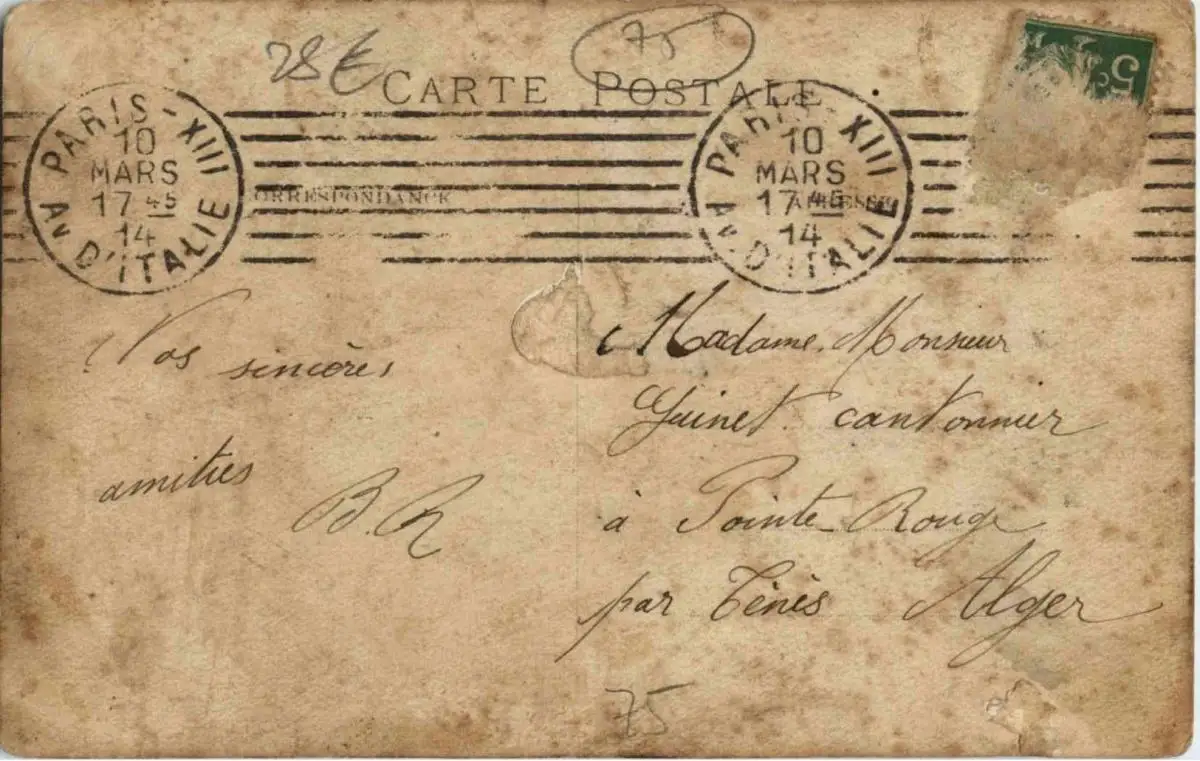 28 €
75
CARTE POSTALE
PARIS - XIII
10
MARS
17 45
14
AV. D'ITALIE
PARIS XIII
10
MARS
17 45
14
AV. D'ITALIE
5c
CORRESPONDANCE
ADRESSE
Vos sincères
amitiés
B.R
Madame, Monsieur
Guinet cantonnier
à Pointe-Rouge
par Ténès Alger
75